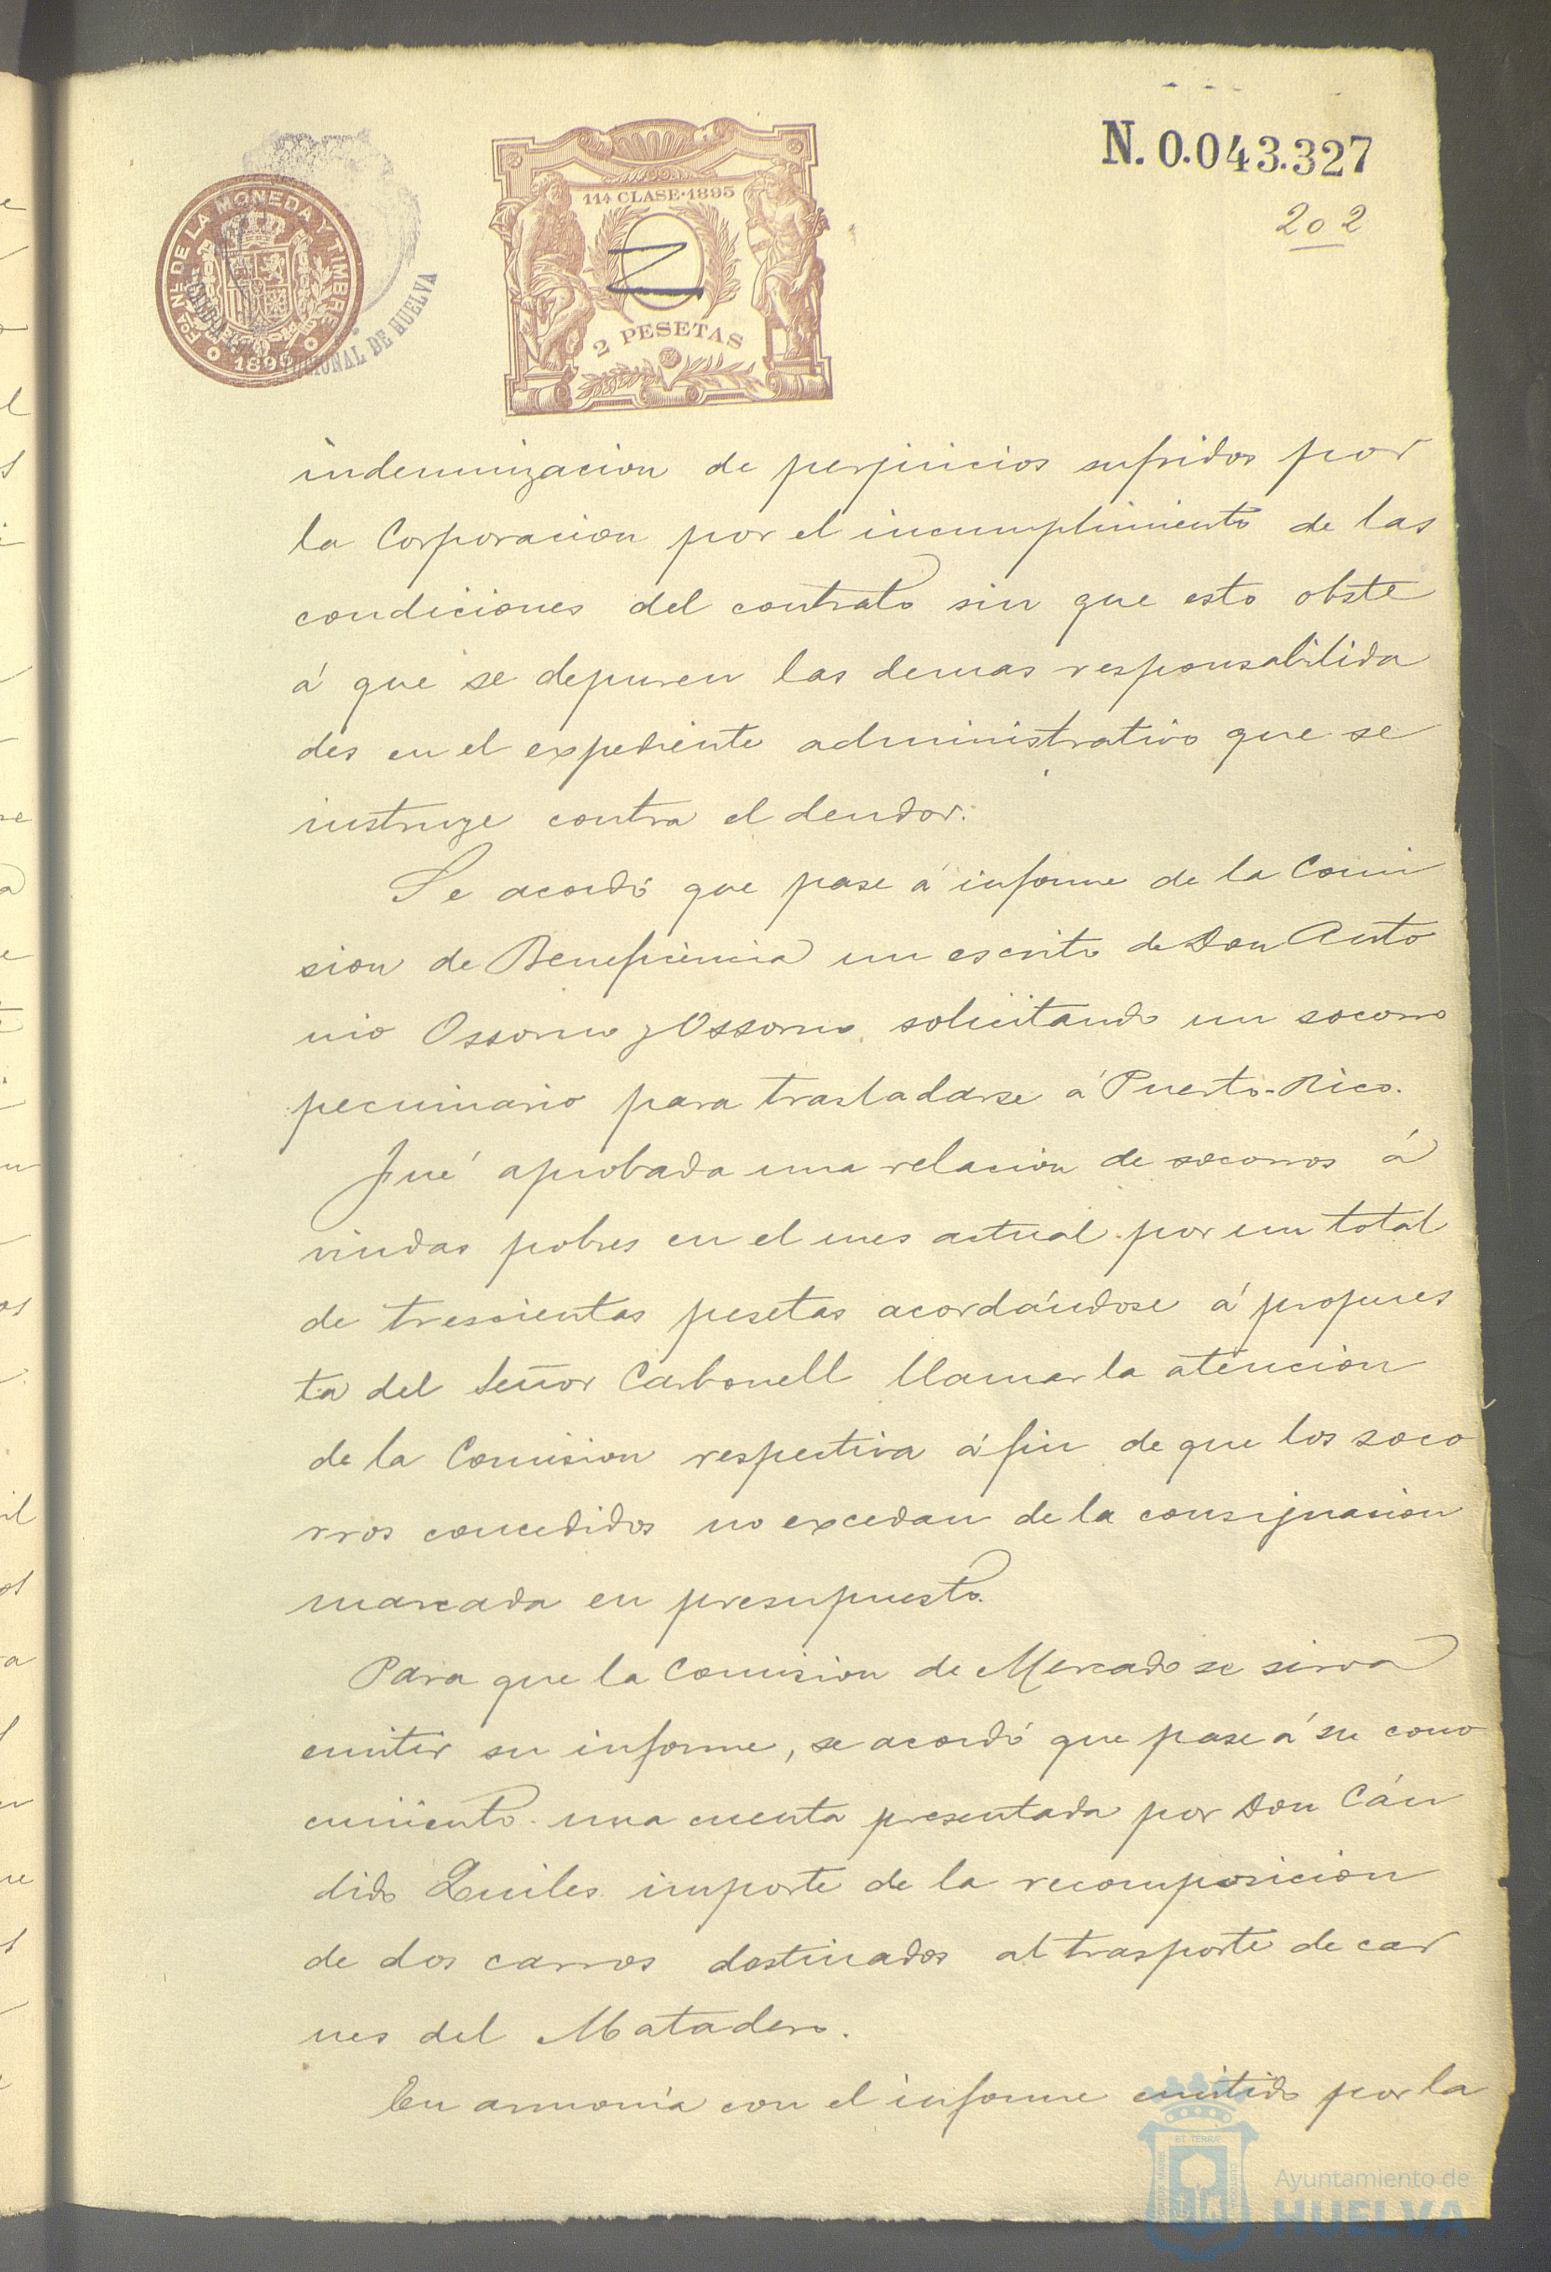 N. 0.043.327
202
FCA. NL. DE LA MONEDA Y TIMBRE
1895
CIONAL DE HUELVA
11ª CLASE·1895
2 PESETAS
indemnizacion de perjuicios sufridos por
la Corporacion por el incumplimiento de las
condiciones del contrato sin que esto obste
á que se depuren las demas responsabilida
des en el expediente administrativo que se
instruye contra el deudor.
Se acordó que pase á informe de la Comi
sion de Beneficencia un escrito de Don Anto
nio Ossorno y Ossorno, solicitando un socorro
pecuniario para trasladarse á Puerto-Rico.
Fué aprobada una relacion de socorros á
viudas pobres en el mes actual por un total
de trescientas pesetas acordándose á propues
ta del Señor Carbonell llamar la atencion
de la Comision respectiva á fin de que los soco
rros concedidos no excedan de la consignacion
marcada en presupuesto.
Para que la Comision de Mercado se sirva
emitir su informe, se acordó que pase á su cono
cimiento una cuenta presentada por Don Cán
dido Quiles importe de la recomposicion
de dos carros destinados al trasporte de car
nes del Matadero.
En armonía con el informe emitido por la
Ayuntamiento de
HUELVA